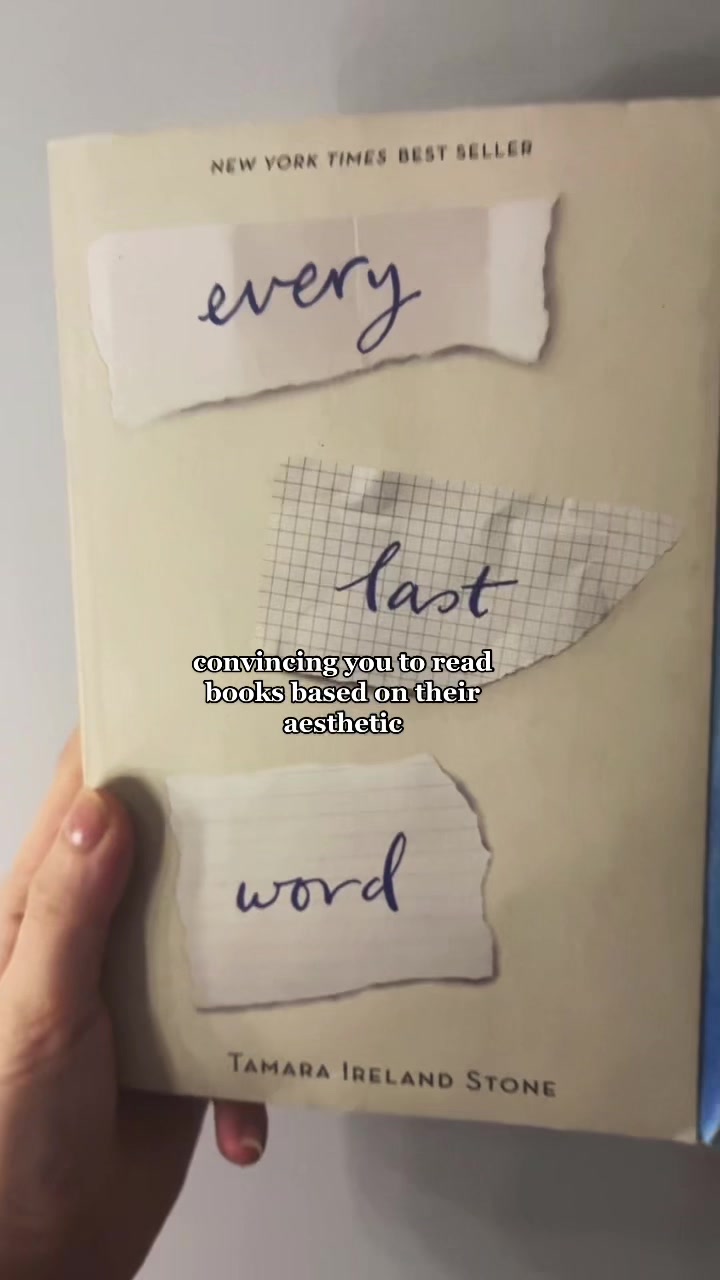 NEW YORK TIMES BEST SELLER
every
last
convincing you to read
books based on their
aesthetic
word
TAMARA IRELAND STONE